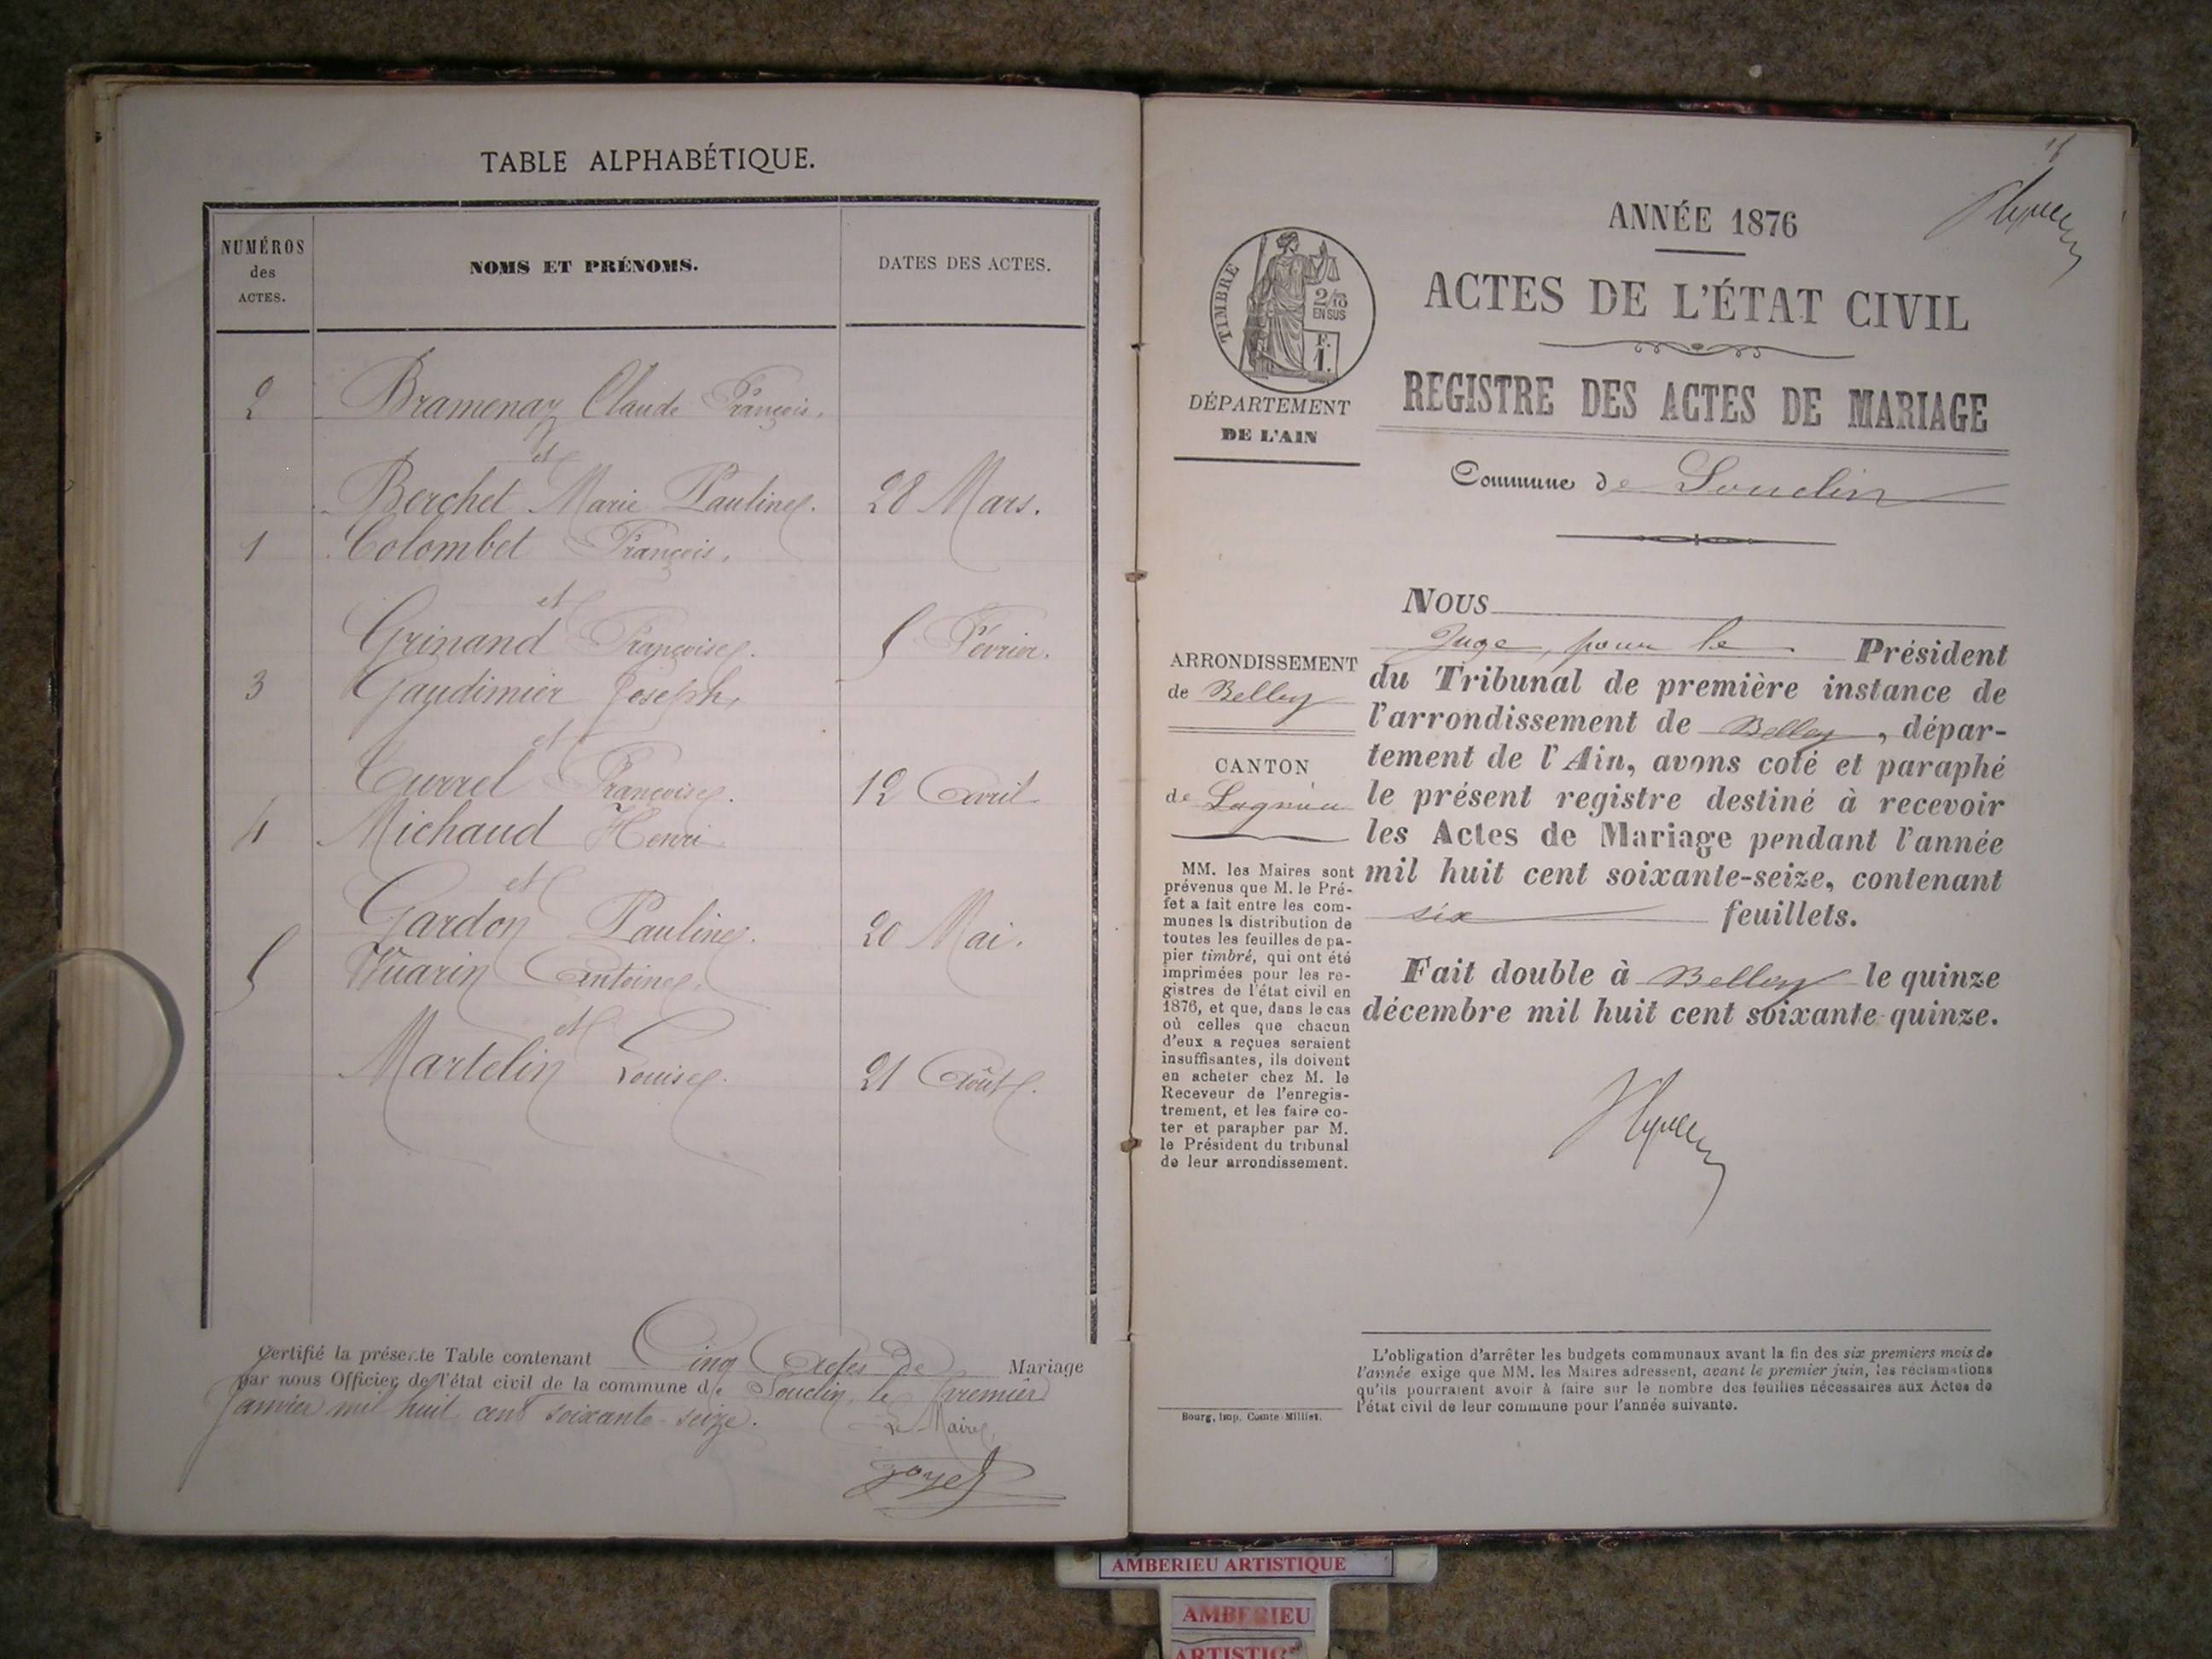 TABLE ALPHABÉTIQUE.
NUMÉROS
des
ACTES.
NOMS ET PRÉNOMS.
DATES DES ACTES.
2 Bramenaz Claude François,
et
Berchet Marie Pauline. 28 Mars.
1 Colombet François,
et
Grinand Françoise. 5 Février.
3 Gaudimier Joseph,
et
Currel Françoise. 12 Avril
4 Michaud Henri
et
Gardon Pauline. 20 Mai.
5 Wuarin Antoine,
et
Martelin Louise. 21 Août.
Certifié la présente Table contenant Cinq Actes de Mariage
par nous Officier de l'état civil de la commune de Souclin, le premier
Janvier mil huit cent soixante-seize.
Le Maire,
ANNÉE 1876
ACTES DE L'ÉTAT CIVIL
REGISTRE DES ACTES DE MARIAGE
Commune de Souclin
TIMBRE
2/10
EN SUS
F.
1.
DÉPARTEMENT
DE L'AIN
ARRONDISSEMENT
de Belley
CANTON
de Lagnieu
MM. les Maires sont
prévenus que M. le Pré-
fet a fait entre les com-
munes la distribution de
toutes les feuilles de pa-
pier timbré, qui ont été
imprimées pour les re-
gistres de l'état civil en
1876, et que, dans le cas
où celles que chacun
d'eux a reçues seraient
insuffisantes, ils doivent
en acheter chez M. le
Receveur de l'enregis-
trement, et les faire co-
ter et parapher par M.
le Président du tribunal
de leur arrondissement.
NOUS
Juge, pour le Président
du Tribunal de première instance de
l'arrondissement de Belley, dépar-
tement de l'Ain, avons coté et paraphé
le présent registre destiné à recevoir
les Actes de Mariage pendant l'année
mil huit cent soixante-seize, contenant
six feuillets.
Fait double à Belley le quinze
décembre mil huit cent soixante-quinze.
L'obligation d'arrêter les budgets communaux avant la fin des six premiers mois de
l'année exige que MM. les Maires adressent, avant le premier juin, les réclamations
qu'ils pourraient avoir à faire sur le nombre des feuilles nécessaires aux Actes de
l'état civil de leur commune pour l'année suivante.
Bourg, Imp. Comte-Milliet.
AMBERIEU ARTISTIQUE
AMBERIEU
ARTISTIQUE